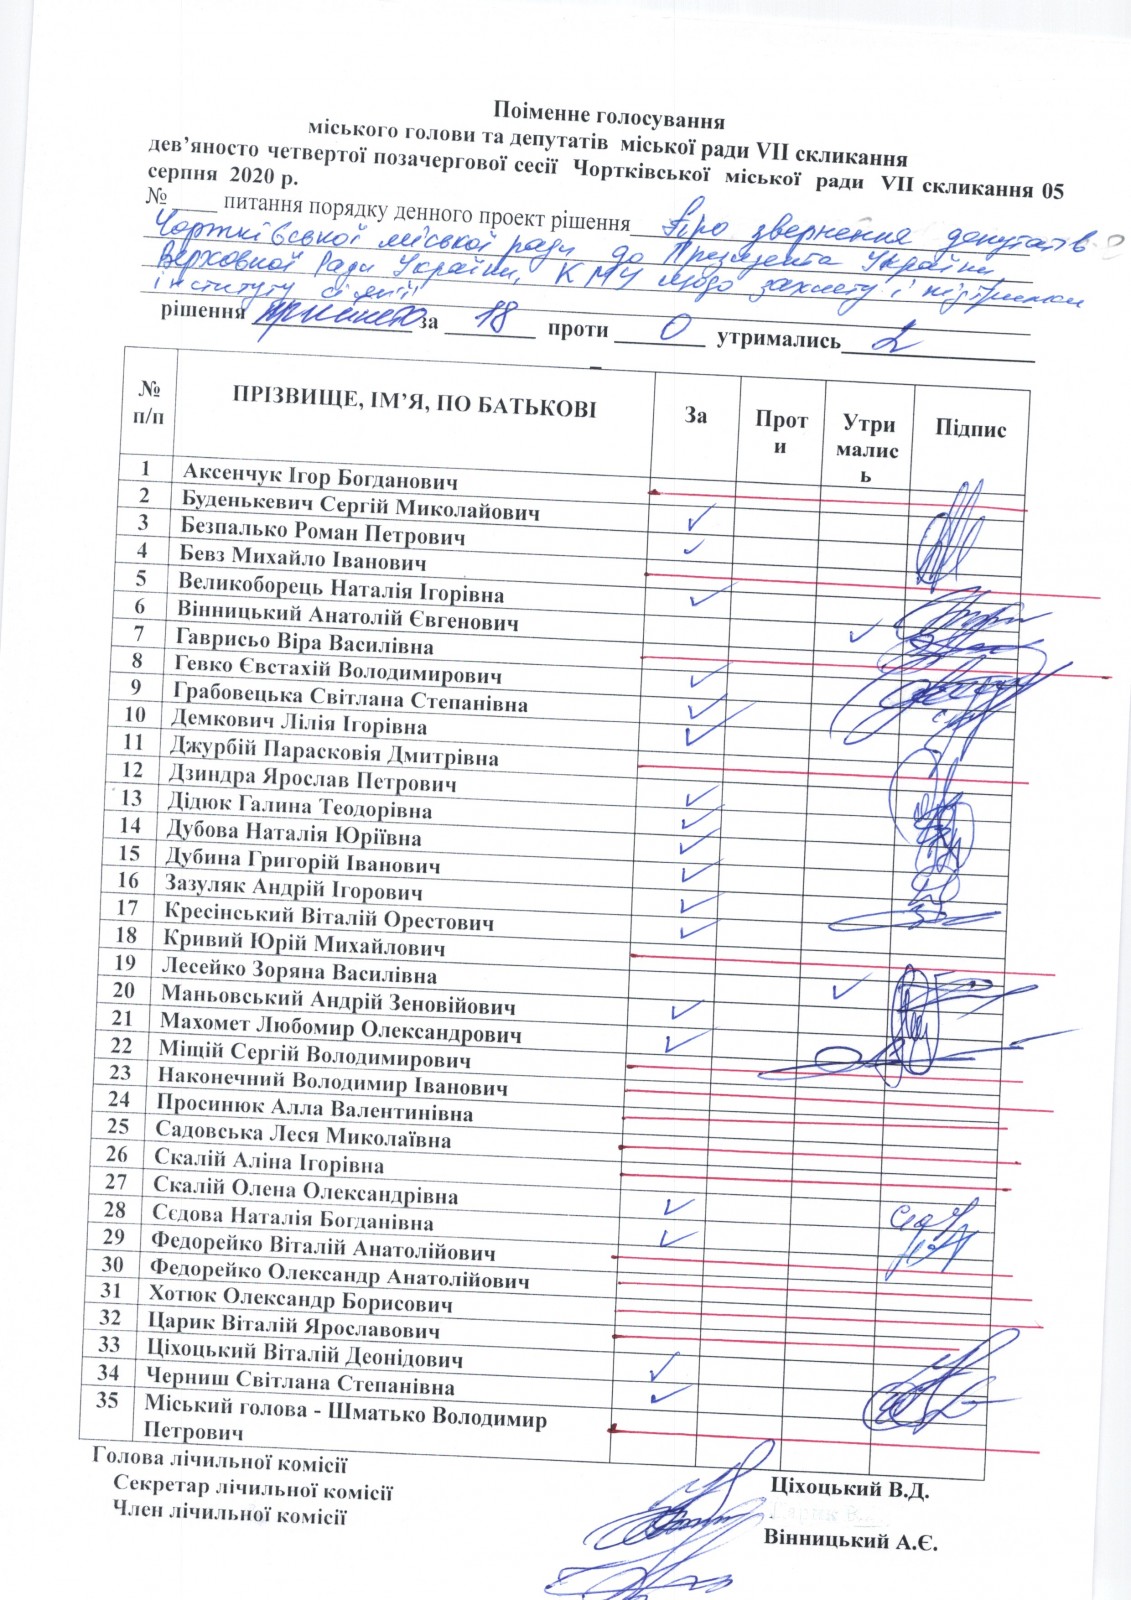 Поіменне голосування
міського голови та депутатів міської ради VII скликання
дев’яносто четвертої позачергової сесії Чортківської міської ради VII скликання 05
серпня 2020 р.
№ ____ питання порядку денного проект рішення Про звернення депутатів
Чортківської міської ради до Президента України,
Верховної Ради України, КМУ щодо захисту і підтримки
інституту сім'ї
рішення прийнято за 18 проти 0 утримались 2
№ п/п ПРІЗВИЩЕ, ІМ’Я, ПО БАТЬКОВІ За Проти Утримались Підпис
1 Аксенчук Ігор Богданович
2 Буденькевич Сергій Миколайович
3 Безпалько Роман Петрович
4 Бевз Михайло Іванович
5 Великоборець Наталія Ігорівна
6 Вінницький Анатолій Євгенович
7 Гаврисьо Віра Василівна
8 Гевко Євстахій Володимирович
9 Грабовецька Світлана Степанівна
10 Демкович Лілія Ігорівна
11 Джурбій Парасковія Дмитрівна
12 Дзиндра Ярослав Петрович
13 Дідюк Галина Теодорівна
14 Дубова Наталія Юріївна
15 Дубина Григорій Іванович
16 Зазуляк Андрій Ігорович
17 Кресінський Віталій Орестович
18 Кривий Юрій Михайлович
19 Лесейко Зоряна Василівна
20 Маньовський Андрій Зеновійович
21 Махомет Любомир Олександрович
22 Міщій Сергій Володимирович
23 Наконечний Володимир Іванович
24 Просинюк Алла Валентинівна
25 Садовська Леся Миколаївна
26 Скалій Аліна Ігорівна
27 Скалій Олена Олександрівна
28 Сєдова Наталія Богданівна
29 Федорейко Віталій Анатолійович
30 Федорейко Олександр Анатолійович
31 Хотюк Олександр Борисович
32 Царик Віталій Ярославович
33 Ціхоцький Віталій Деонідович
34 Черниш Світлана Степанівна
35 Міський голова - Шматько Володимир
Петрович
Голова лічильної комісії Ціхоцький В.Д.
Секретар лічильної комісії
Член лічильної комісії Вінницький А.Є.